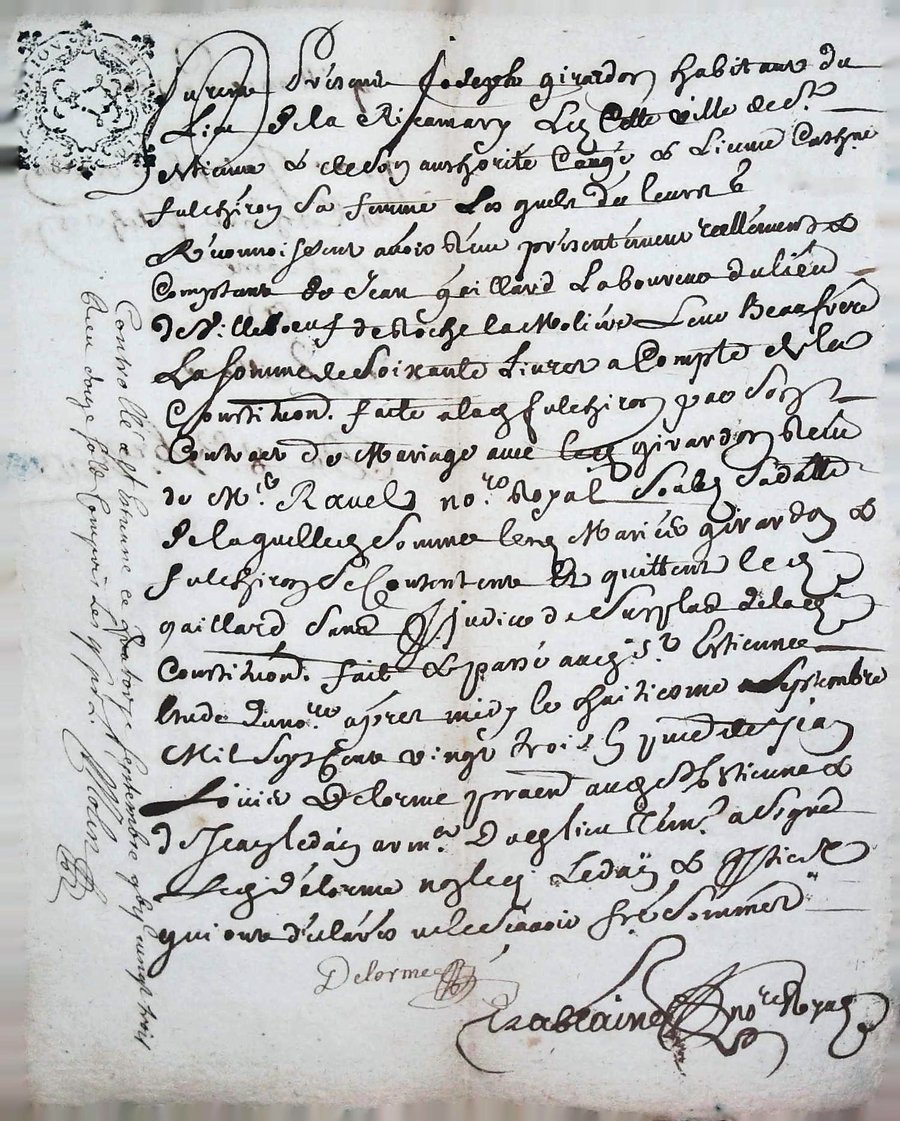 furent Présens Joseph girardon habitant du
Lieu de la Ricamary Lez Cette ville de St
estienne & de son authorité Congé & Licence Catherine
fulchiron sa femme Lesquels de leurs
Réconnoissent avoir Reçu présentément réellément &
Comptant de Jean gaillard Laboureur du liéu
de Villeboeuf de Roche la Moliére Leur Beaufrére
La somme de Soixante Livres a Compte de la
Constitution. faite a lad fulchiron par Son
Contract de Mariage avec led girardon Reçu
de Me Ravel nore Royal Soubz Sa datte
de laquelle Somme lesd Mariés girardon &
fulchiron Se Contentent Et quittent led
gaillard Sans préjudice de Surplus de lad
Constitution. fait & passé aud St Estienne
Etude du nore aprés midy le huitiesme Septembre
Mil Sept Cent vingt trois En pnce de Jean
Louis Delorme praen aud St Estienne &
de Jean ledin armer Dud lieu Tém. a Signé
Led délorme non led Ledin & parties
qui ont déclarés ne le Scavoir de ce Sommés
Delorme
nore Royal
Controllé a St Estienne ce quatorze Septembre 1700 vingt trois
Reçu douze sols Compris Les 4 s par